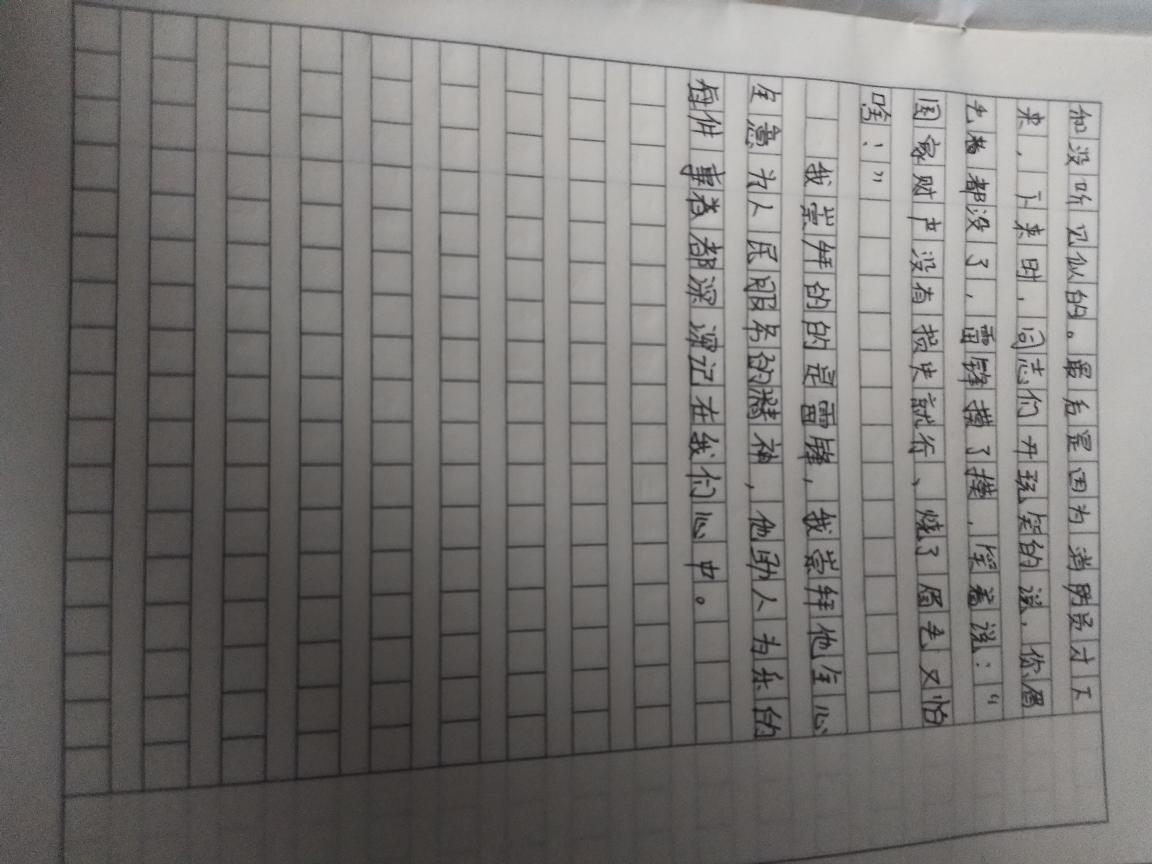 和没听见似的。最后是因为消防员才下
来，下来时，同志们开玩笑的说，你眉
毛着都没了，雷锋摸了摸，笑着说：“
国家财产没有损失就行、烧了眉毛又怕
啥：”
我崇拜的的是雷锋，我崇拜他全心
全意为人民服务的精神，他助人为乐的
每件事都深深记在我们心中。